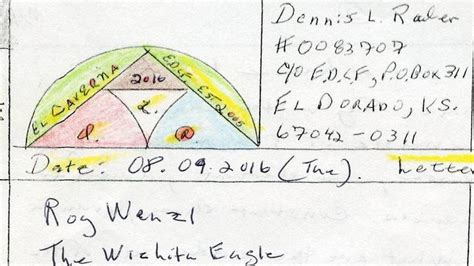 Dennis L. Rader
#0083707
C/O E.D.C.F., P.O. BOX 311
EL DORADO, KS.
67042-0311
EL CAVERNA
EDCF EST. 2005
2016
L.
D.
R.
Date: 08.09.2016 (Tue). Letter
Roy Wenzl
The Wichita Eagle